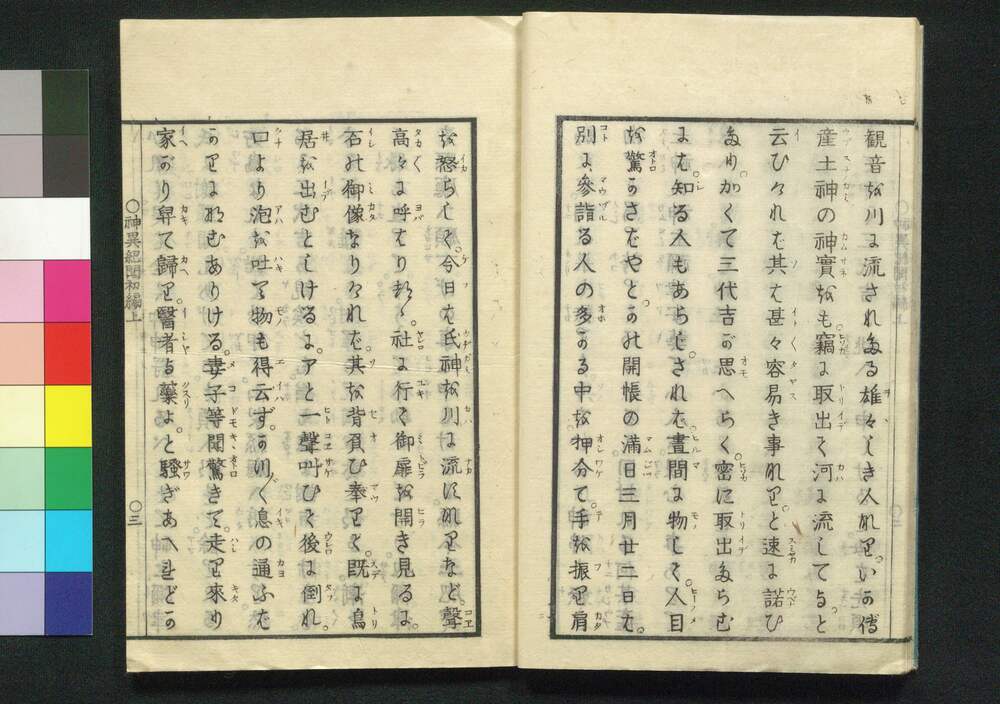 観音を川に流されたる雄々しき人なり。いかで
産土神の神實をも。竊に取出て河に流してよと
云ひければ其は甚々容易き事なりと速に諾ひ
たりかくて三代吉が思へらく密に取出たらむ
には。知る人もあらじ。されば。晝間に物して。人目
を驚かさばやと。かの開帳の満日三月廿二日は。
別に參詣る人の多かる中を押分て。手を振り肩
を怒らして。今日は氏神を川に流すなりなど聲
高々に呼はりつゝ。社に行て御扉を開き見るに。
石の御像なりければ其を背負ひ奉りて。既に鳥
居を出むとしけるに。アと一聲叫びて後に倒れ。
口より泡を吐て物も得云ず。かつ〴〵息の通ふば
かりになむありける。妻子等聞驚きて。走り來り
家がり舁て歸り。醫者よ藥よ。と騒ぎあへれどか
○神異紀聞初編上
○三